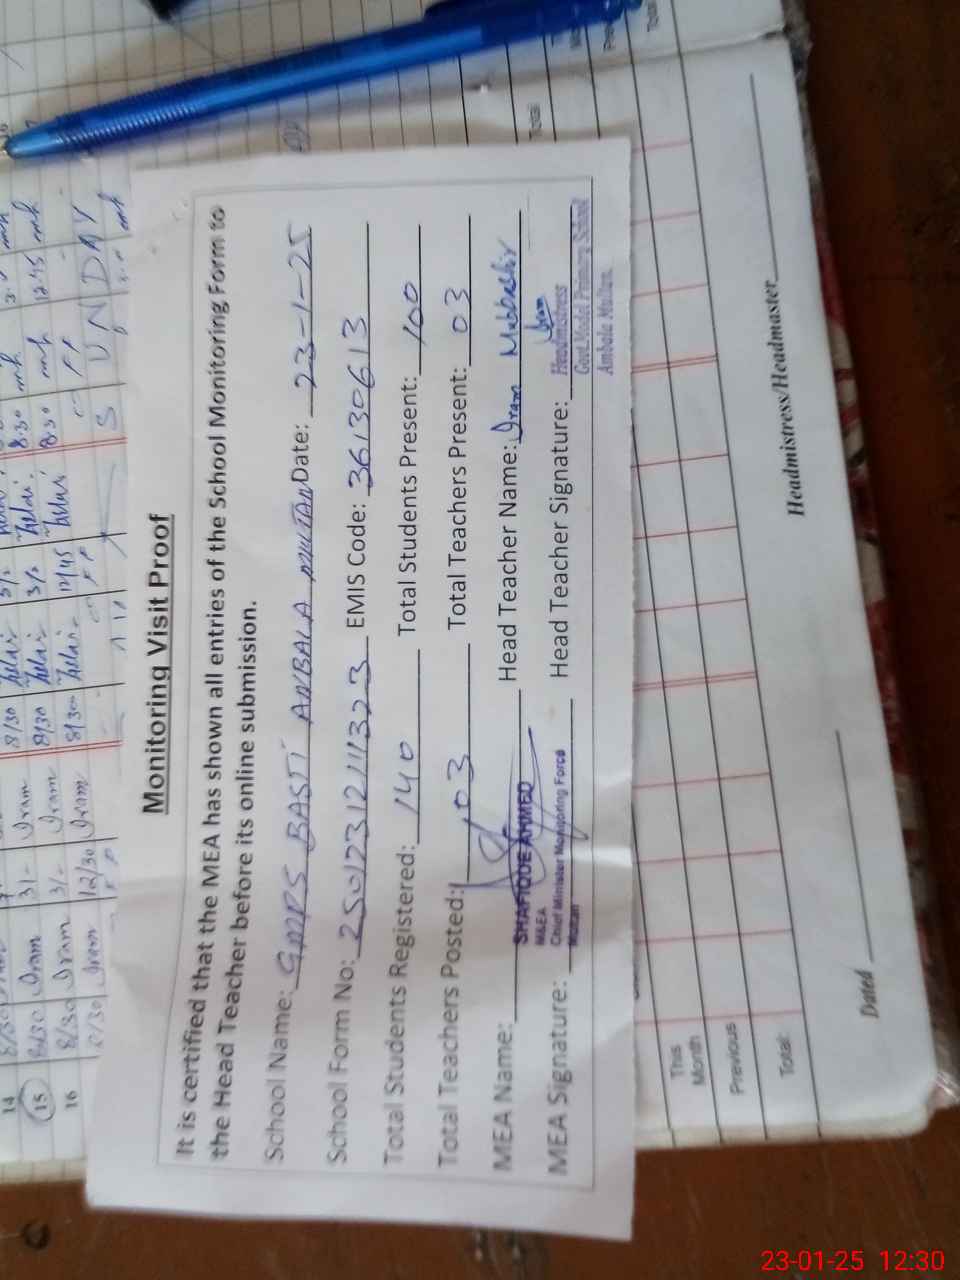 Monitoring Visit Proof
It is certified that the MEA has shown all entries of the School Monitoring Form to
the Head Teacher before its online submission.
School Name: GMPS BASTI AMBALA MULTAN Date: 23-1-25
School Form No: 2501231211323 EMIS Code: 36130613
Total Students Registered: 140 Total Students Present: 100
Total Teachers Posted: 03 Total Teachers Present: 03
MEA Name: SHAFIQUE AHMED Head Teacher Name: Iram Mubbashir
MEA
Chief Minister Monitoring Force
Multan
MEA Signature: Head Teacher Signature: Iram
Headmistress
Govt. Model Primary School
Ambala Multan
14 8/30
15 8/30 Iram 31- Iram 8/30 3/- 8:30 mh 12:45 mh
16 8/30 Iram 3/- Iram 8/30 12/45 8:30
8/30 Iram 12/30 Iram
S U N D A Y
This
Month
Previous
Total:
Total
Dated
Headmistress/Headmaster
23-01-25 12:30